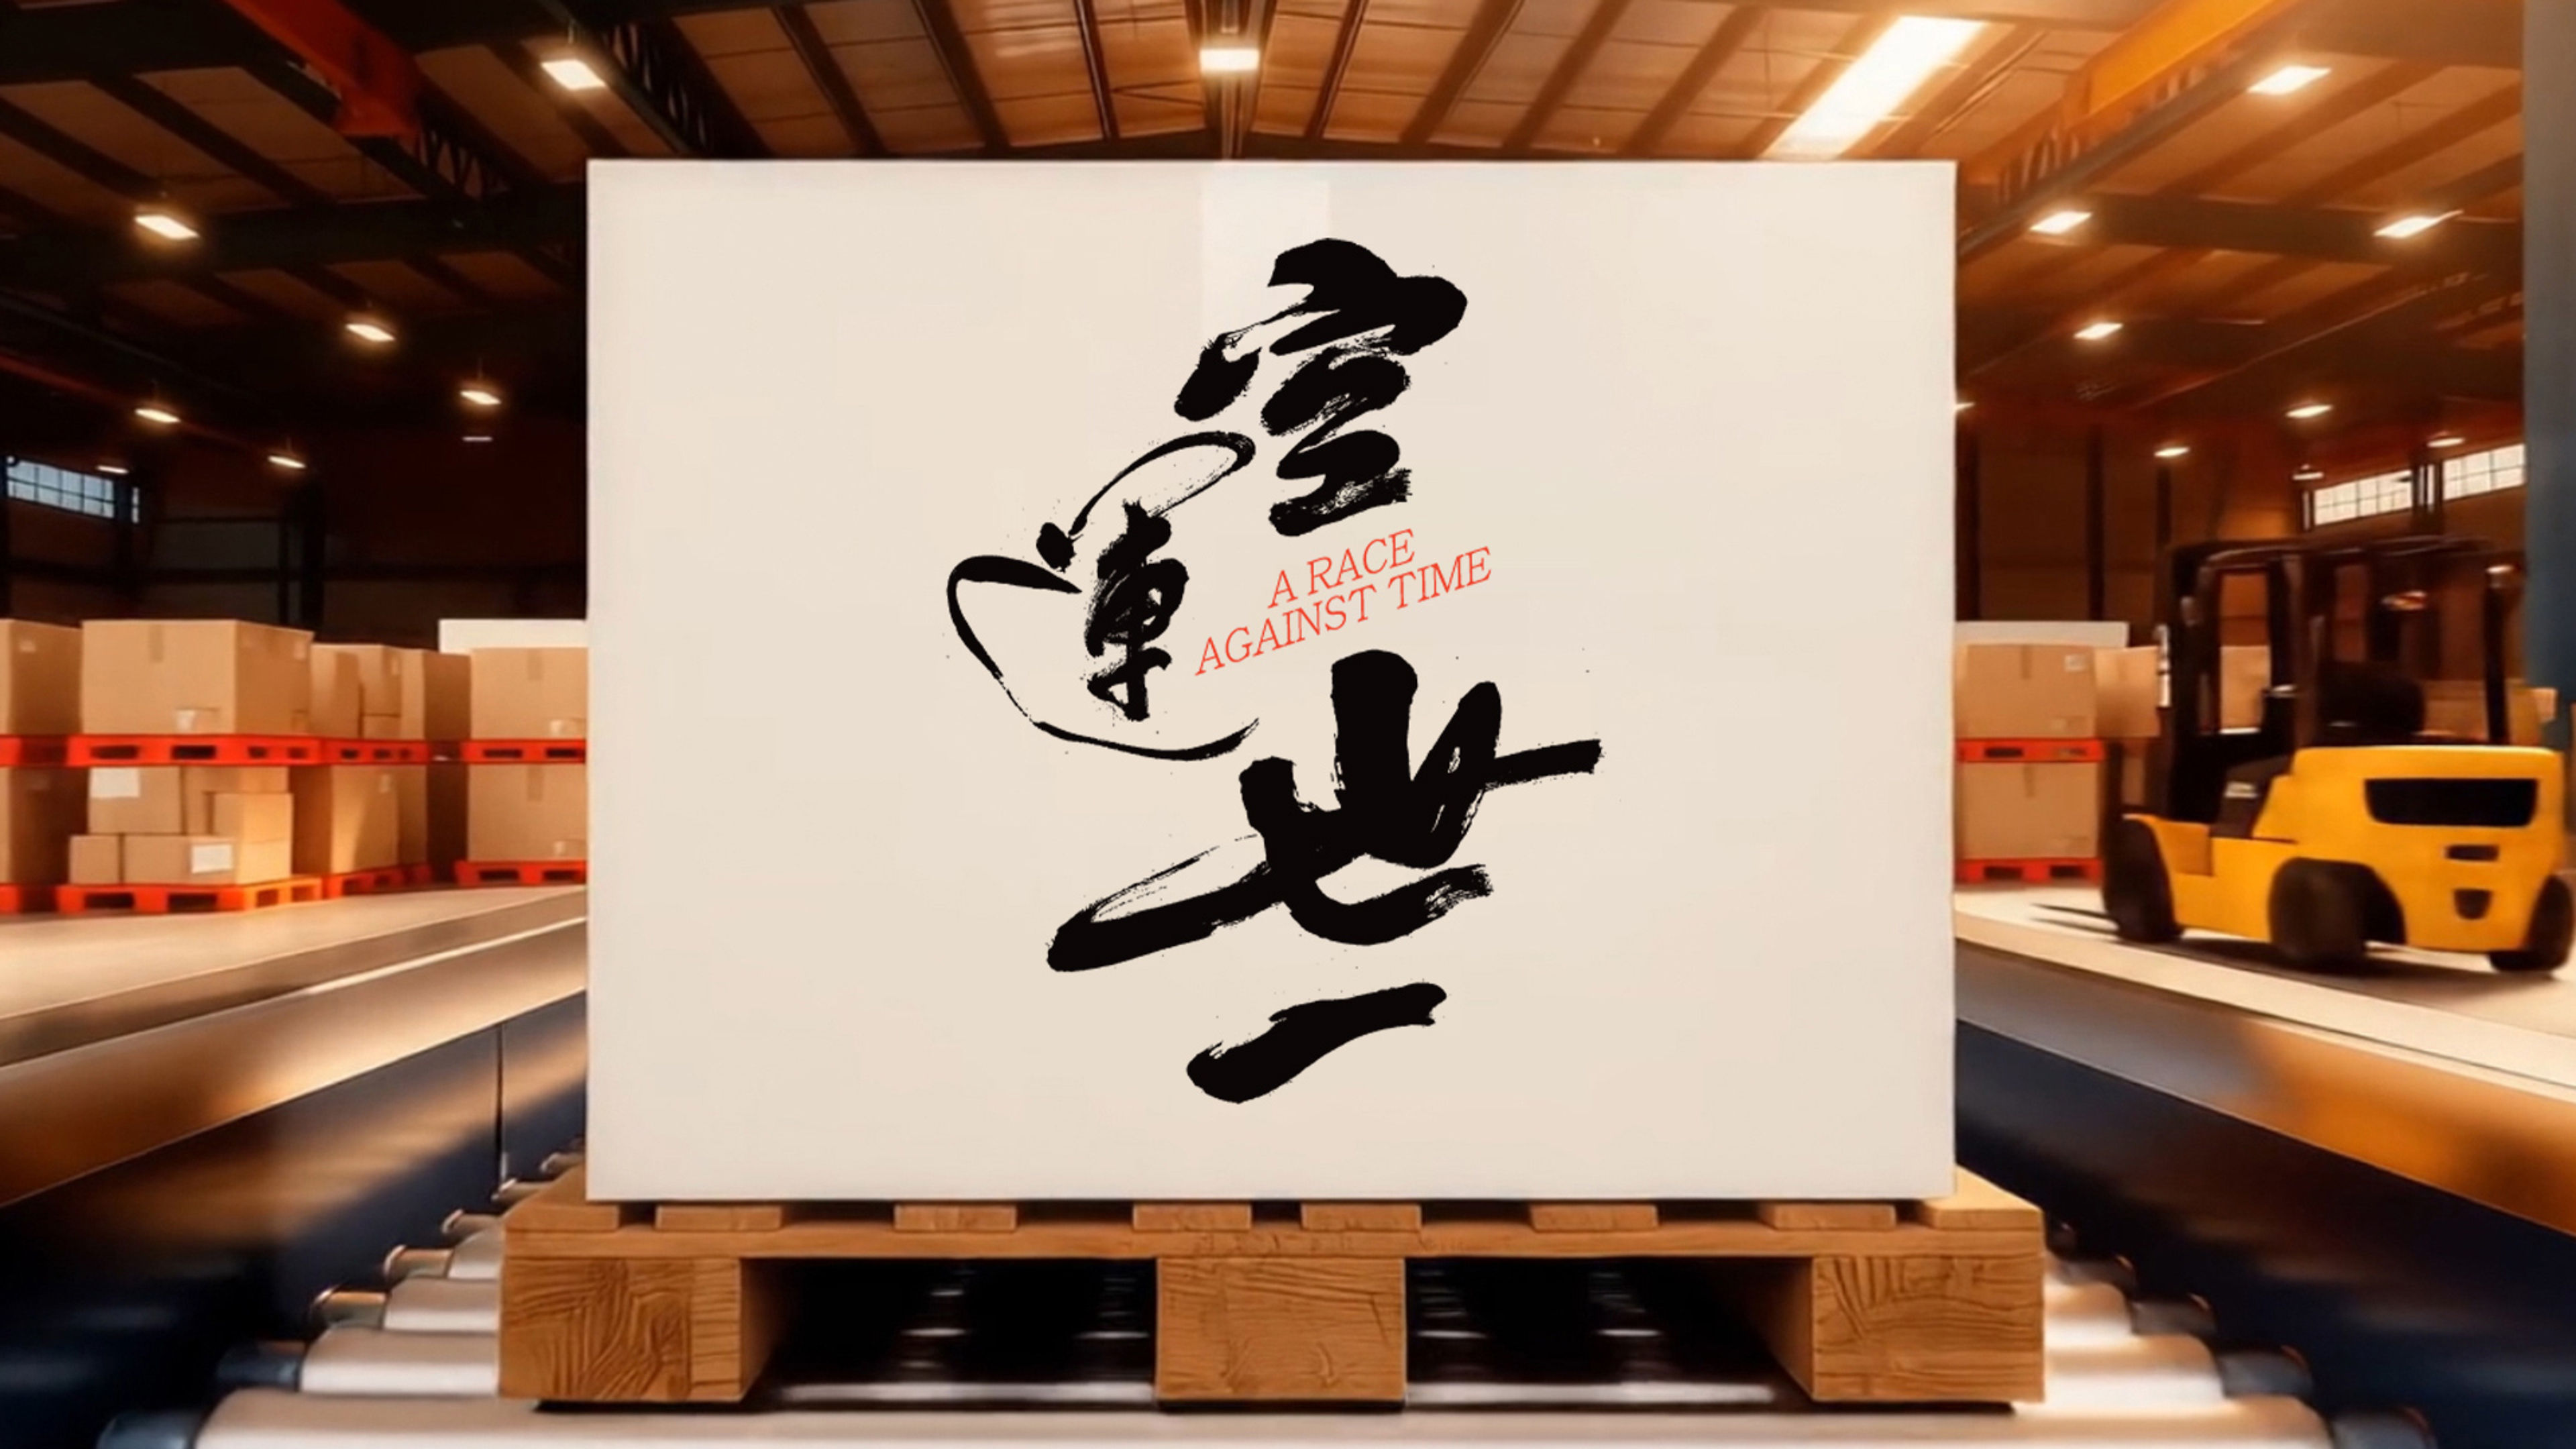 空運世一
A RACE
AGAINST TIME